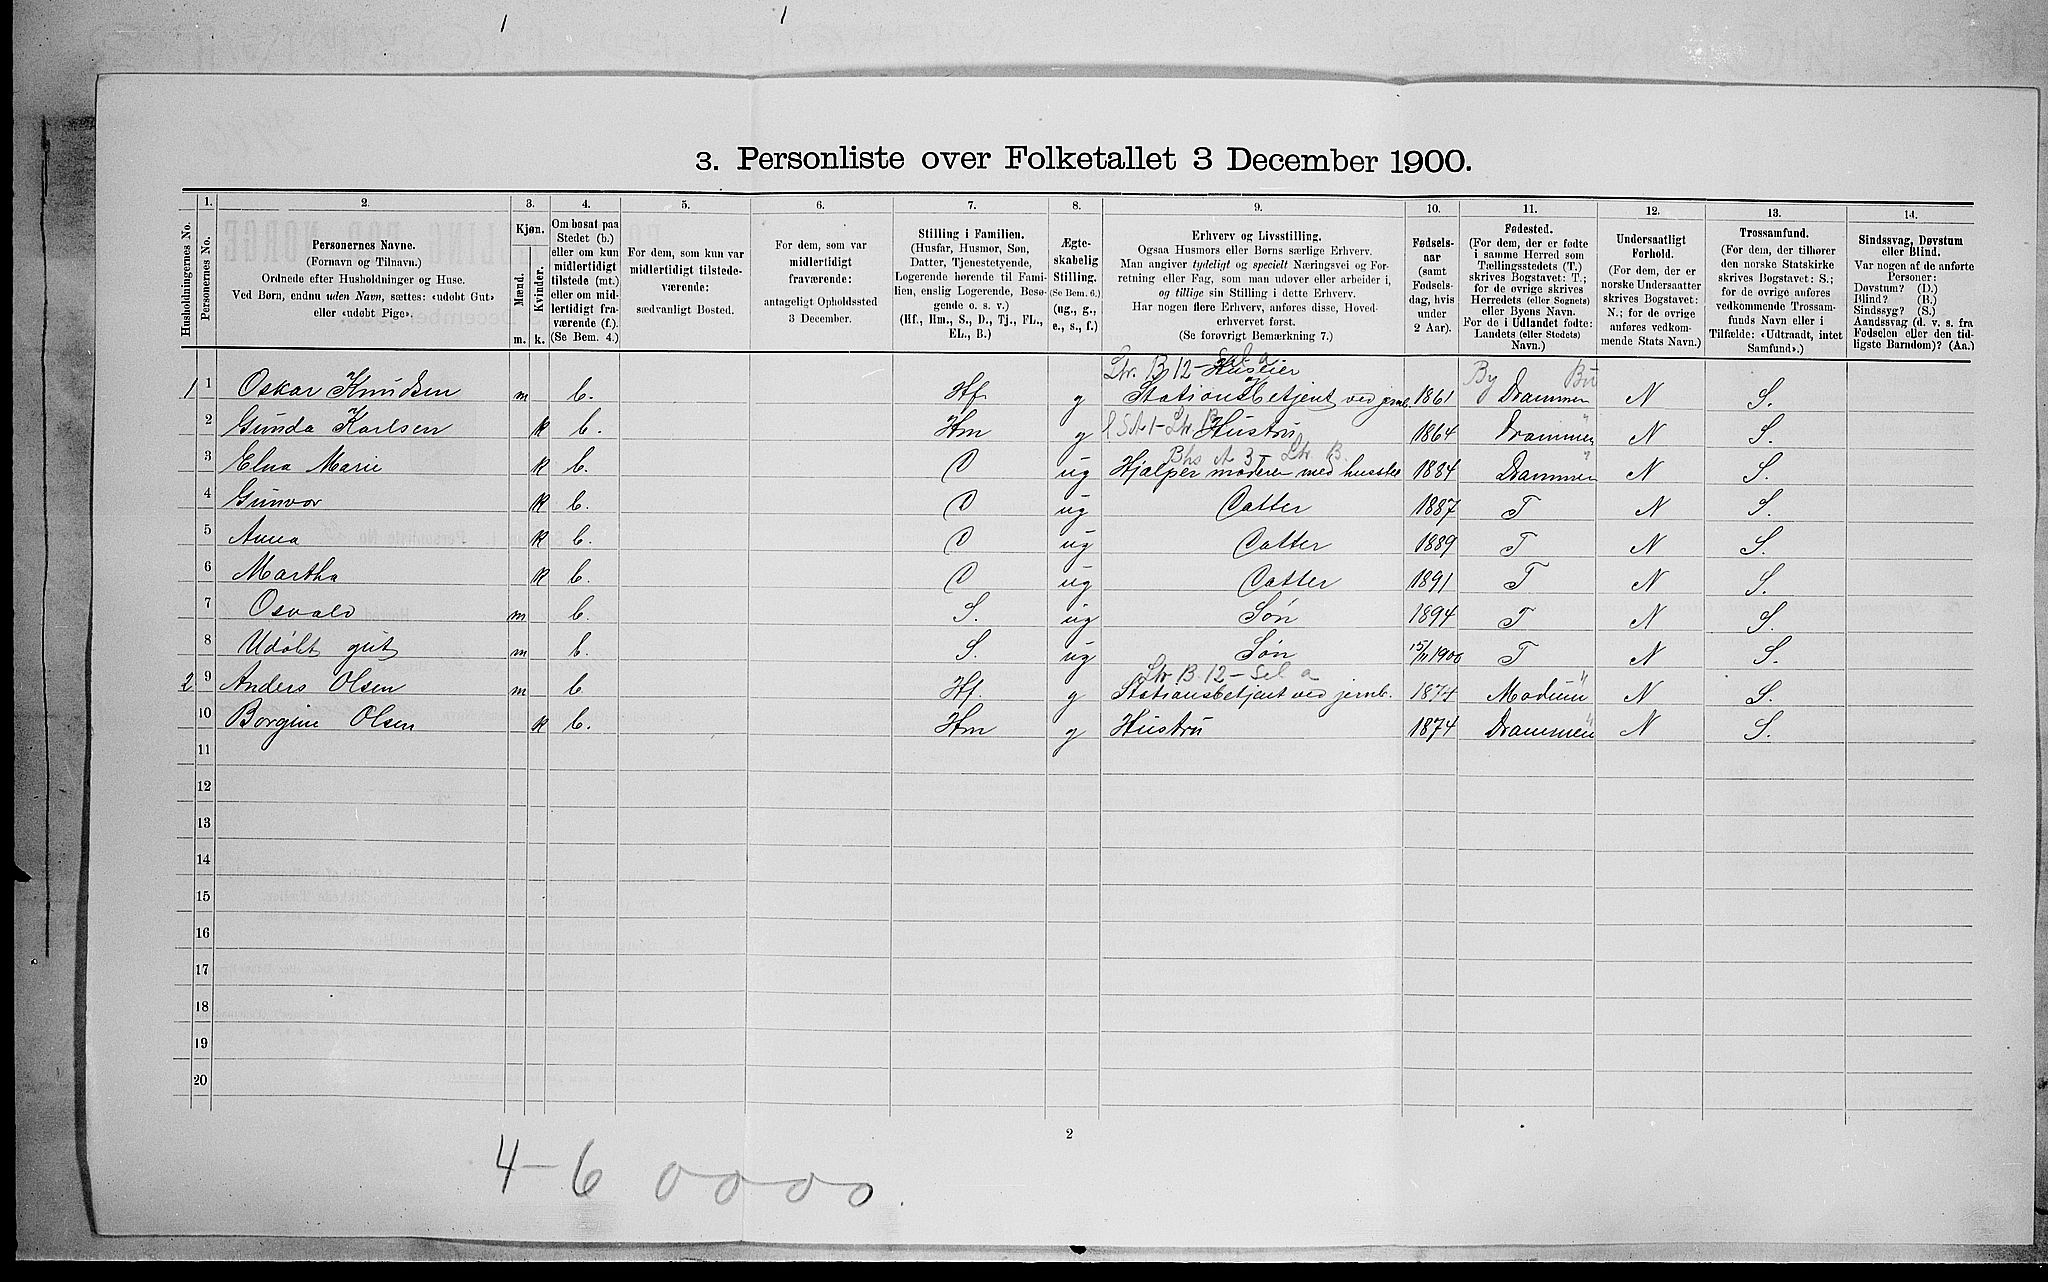 3. Personliste over Folketallet 3 December 1900.
Husholdningernes No.
1. Personernes No.
2. Personernes Navne. (Fornavn og Tilnavn.) Ordnede efter Husholdninger og Huse. Ved Børn, endnu uden Navn, sættes: «udøbt Gut» eller «udøbt Pige».
3. Kjøn. Mænd. m. Kvinder. k.
4. Om bosat paa Stedet (b.) eller om kun midlertidigt tilstede (mt.) eller om midlertidigt fraværende (f.). (Se Bem. 4.)
5. For dem, som kun var midlertidigt tilstedeværende: sædvanligt Bosted.
6. For dem, som var midlertidigt fraværende: antageligt Opholdssted 3 December.
7. Stilling i Familien. (Husfar, Husmor, Søn, Datter, Tjenestetyende, Logerende hørende til Familien, enslig Logerende, Besøgende o. s. v.) (Hf., Hm., S., D., Tj., FL., EL., B.)
8. Ægteskabelig Stilling. (Se Bem. 6.) (ug., g., e., s., f.)
9. Erhverv og Livsstilling. Ogsaa Husmors eller Børns særlige Erhverv. Man angiver tydeligt og specielt Næringsvei og Forretning eller Fag, som man udøver eller arbeider i, og tillige sin Stilling i dette Erhverv. Har nogen flere Erhverv, anføres disse, Hovederhvervet først. (Se forøvrigt Bemærkning 7.)
10. Fødselsaar (samt Fødselsdag, hvis under 2 Aar).
11. Fødested. (For dem, der er fødte i samme Herred som Tællingsstedets (T.) skrives Bogstavet: T.; for de øvrige skrives Herredets (eller Sognets) eller Byens Navn. For de i Udlandet fødte: Landets (eller Stedets) Navn.)
12. Undersaatligt Forhold. (For dem, der er norske Undersaatter skrives Bogstavet: N.; for de øvrige anføres vedkommende Stats Navn.)
13. Trossamfund. (For dem, der tilhører den norske Statskirke skrives Bogstavet: S.; for de øvrige anføres vedkommende Trossamfunds Navn eller i Tilfælde: «Udtraadt, intet Samfund».)
14. Sindssvag, Døvstum eller Blind. Var nogen af de anførte Personer: Døvstum? (D.) Blind? (B.) Sindssyg? (S.) Aandssvag (d. v. s. fra Fødselen eller den tidligste Barndom)? (Aa.)
Ltr. B 12 - Sel a
Huseier og By Bu
1 1 Oskar Knudsen m b. Hf. g Stationsbetjent ved jernb. 1861 Drammen N S.
Ltr. B
2 Gunda Karlsen k b. Hm g Hustru 1864 Drammen " N S.
Bhs A 3 - Ltr. B.
3 Elna Marie k b. D ug Hjælper moderen med husstel 1884 Drammen " N S.
4 Gunvor k b. D ug Datter 1887 T N S.
5 Anna k b. D ug Datter 1889 T N S.
6 Martha k b. D ug Datter 1891 T N S.
7 Osvald m b. S. ug Søn 1894 T N S.
8 Udøbt gut m b. S. ug Søn 15/11 1900 T N S.
Ltr B. 12 - Sel a
2 9 Anders Olsen m b Hf. g Stationsbetjent ved jernb. 1874 Modum " N S.
10 Borgine Olsen k b. Hm g Hustru 1874 Drammen " N S.
11
12
13
14
15
16
17
18
19
20
2
4 - 6 0000.